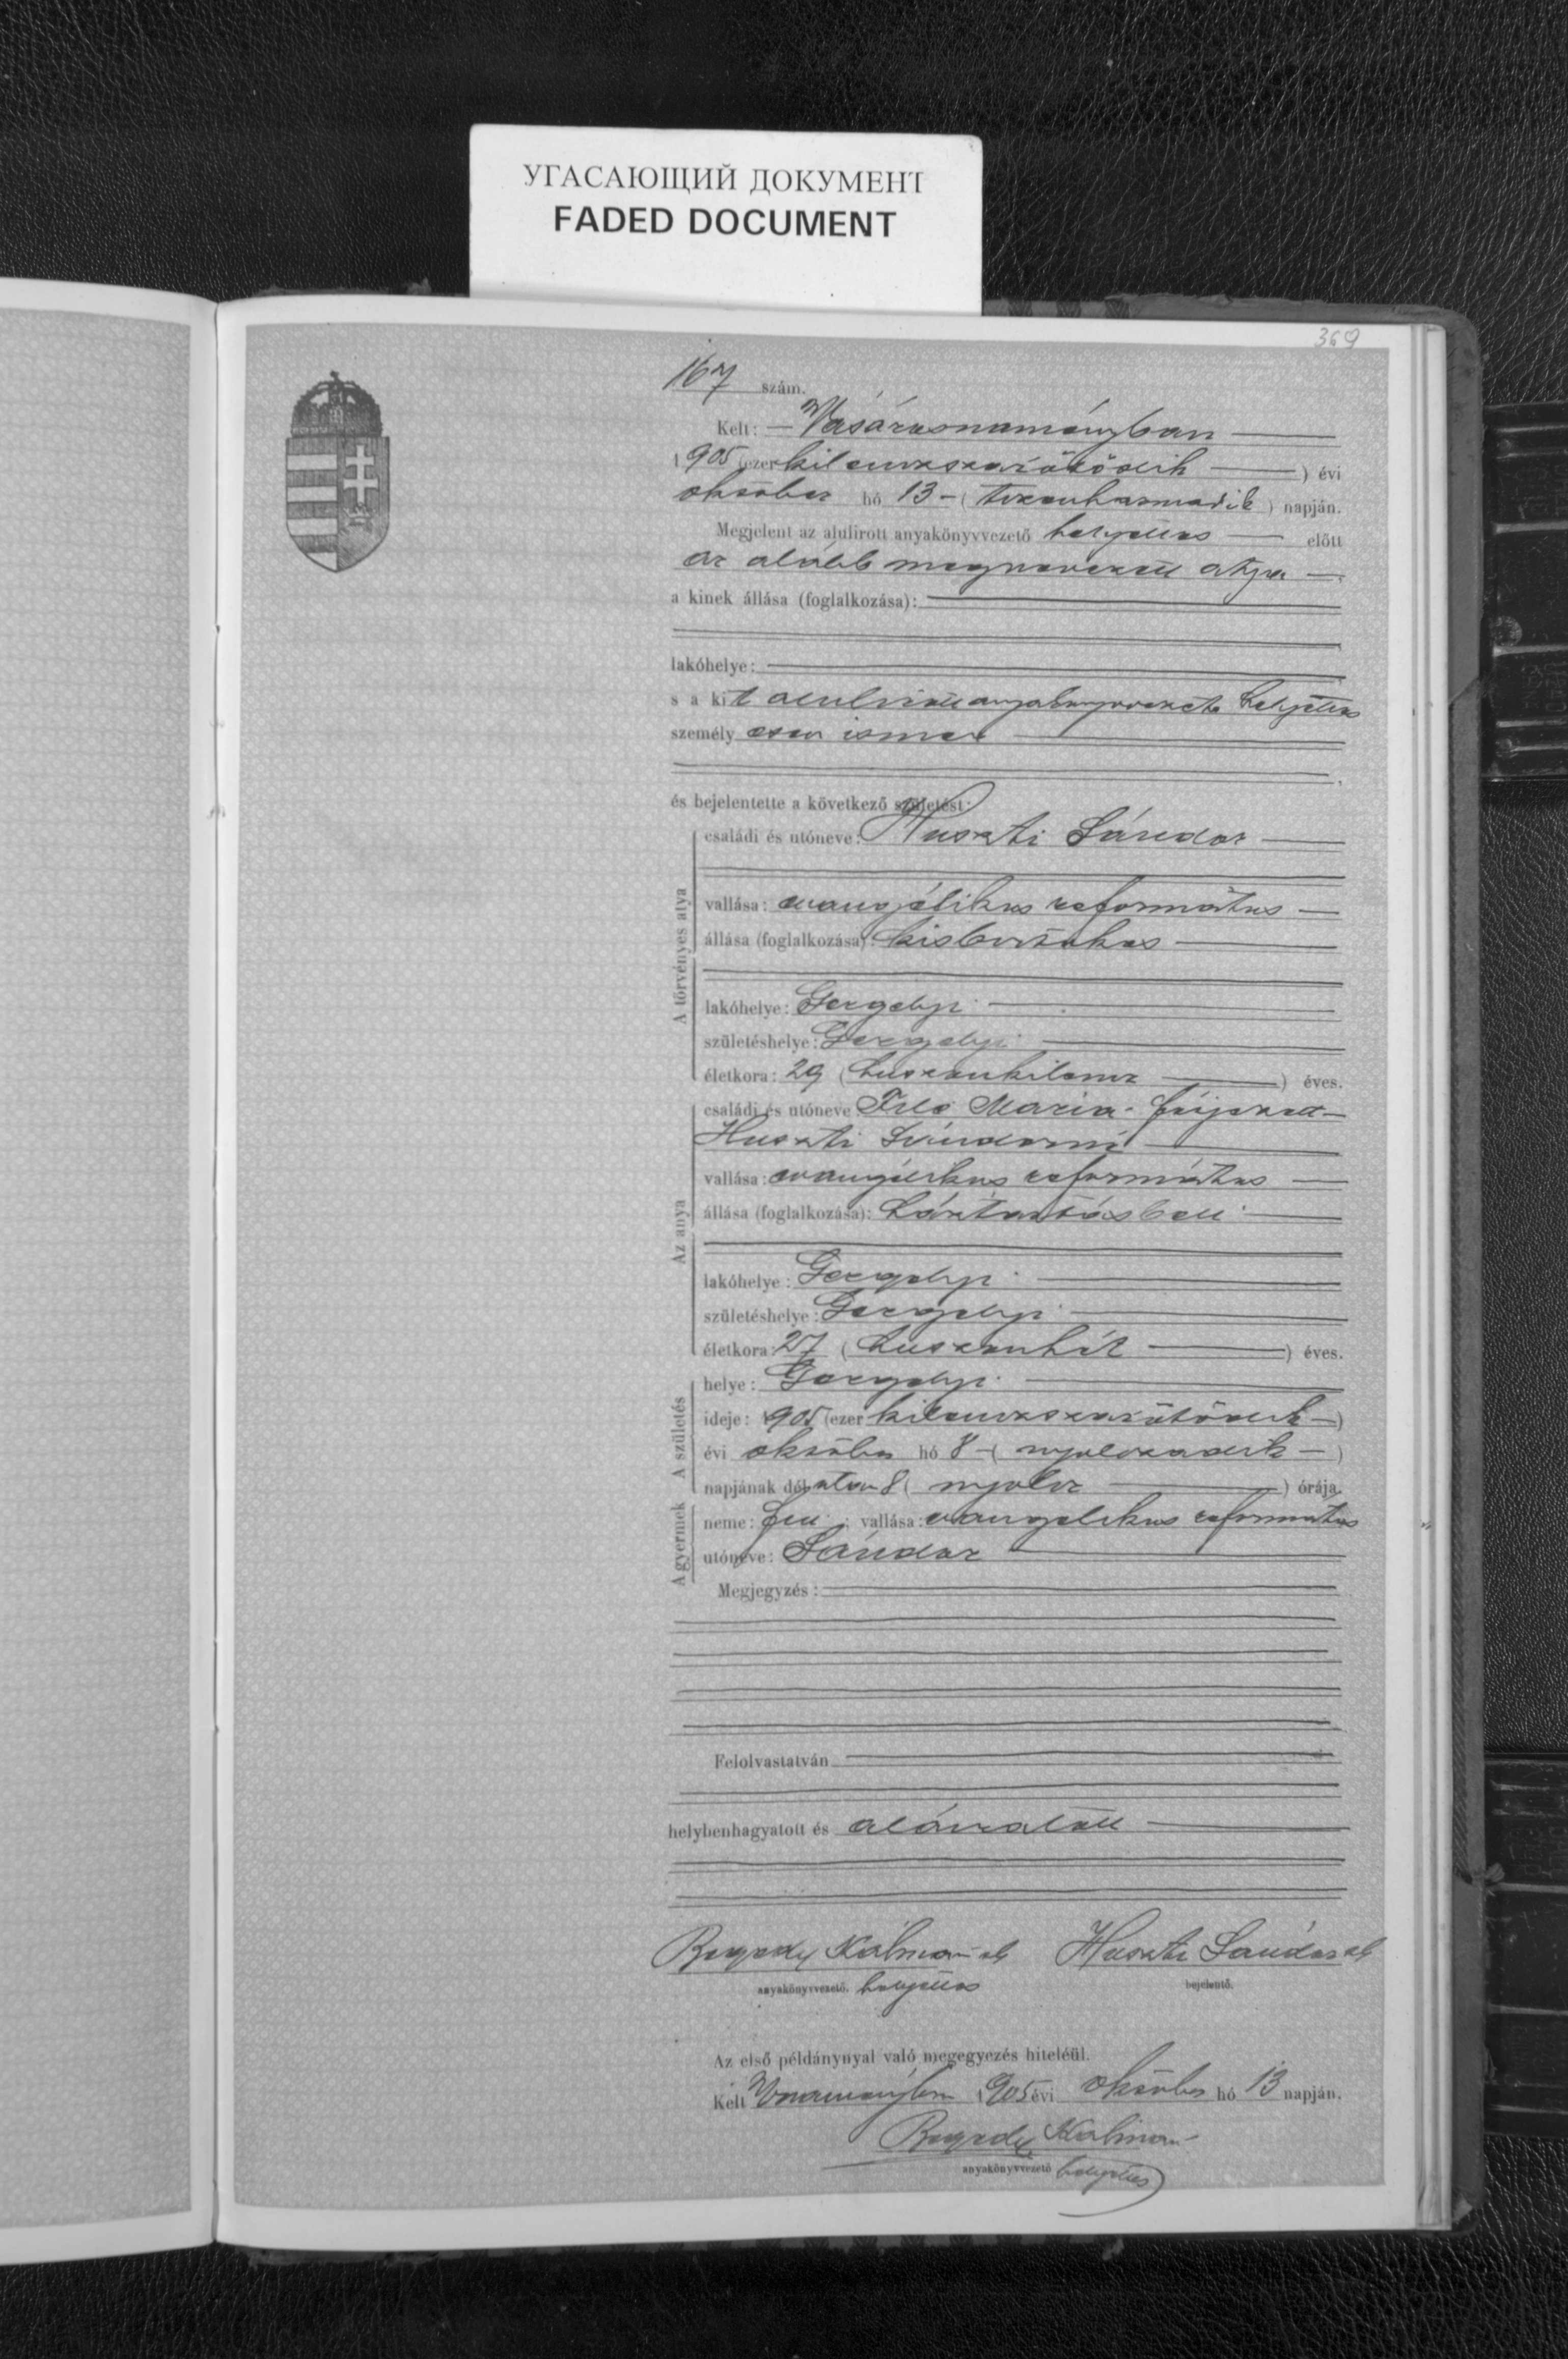 УГАСАЮЩИЙ ДОКУМЕНТ
FADED DOCUMENT
369
167 szám.
Kelt: — Vásárosnaményban —
1905 (ezerkilenczszázötödik —) évi
október hó 13 – (tizenharmadik) napján.
Megjelent az alulirott anyakönyvvezető helyettes — előtt
az alább megnevezett atya —
a kinek állása (foglalkozása):
lakóhelye:
s a kit alulirott anyakönyvvezető helyettes
személyesen ismer —
és bejelentette a következő születést:
A törvényes atya
családi és utóneve: Huszti Sándor —
vallása: evangélikus református —
állása (foglalkozása): kisbirtokos —
lakóhelye: Gergelyi —
születéshelye: Gergelyi —
életkora: 29 (huszonkilencz —) éves.
Az anya
családi és utóneve: Mária férjezett –
Huszti Sándorné —
vallása: evangélikus református —
állása (foglalkozása): háztartásbeli —
lakóhelye: Gergelyi —
születéshelye: Gergelyi —
életkora: 27 (huszonhét —) éves.
A születés
helye: Gergelyi —
ideje: 1905 (ezerkilenczszázötödik —)
évi október hó 8 – (nyolczadik —)
napjának délután 8 (nyolcz —) órája.
A gyermek
neme: fiu; vallása: evangelikus református
utóneve: Sándor —
Megjegyzés:
Felolvastatván
helybenhagyatott és aláiratott —
Kálmán sk Huszti Sándor sk
anyakönyvvezető. helyettes bejelentő.
Az első példánynyal való megegyezés hiteléül.
Kelt Vnaményban 1905 évi október hó 13 napján.
Kálmán
anyakönyvvezető helyettes